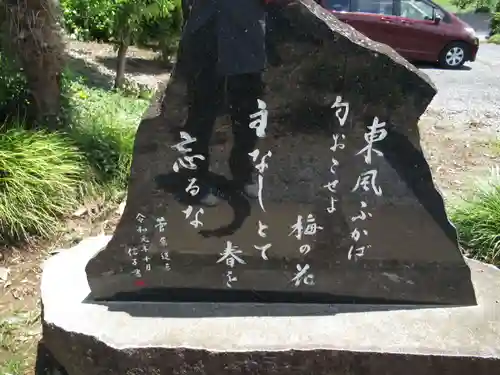 東風ふかば
匂おこせよ
梅の花
主なしとて
春を
忘るな
菅原道真
令和元年十月